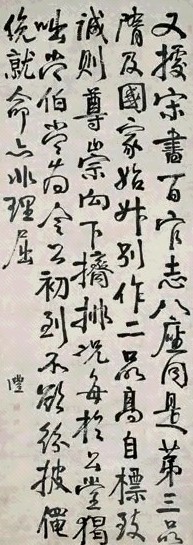 又據宋書百官志八座同是第三品
隋及國家始升別作二品高自標致
誠則尊崇向下擠排況每於公堂猲
咄常伯當為令公初到不欲紛披僶
俛就命亦非理屈